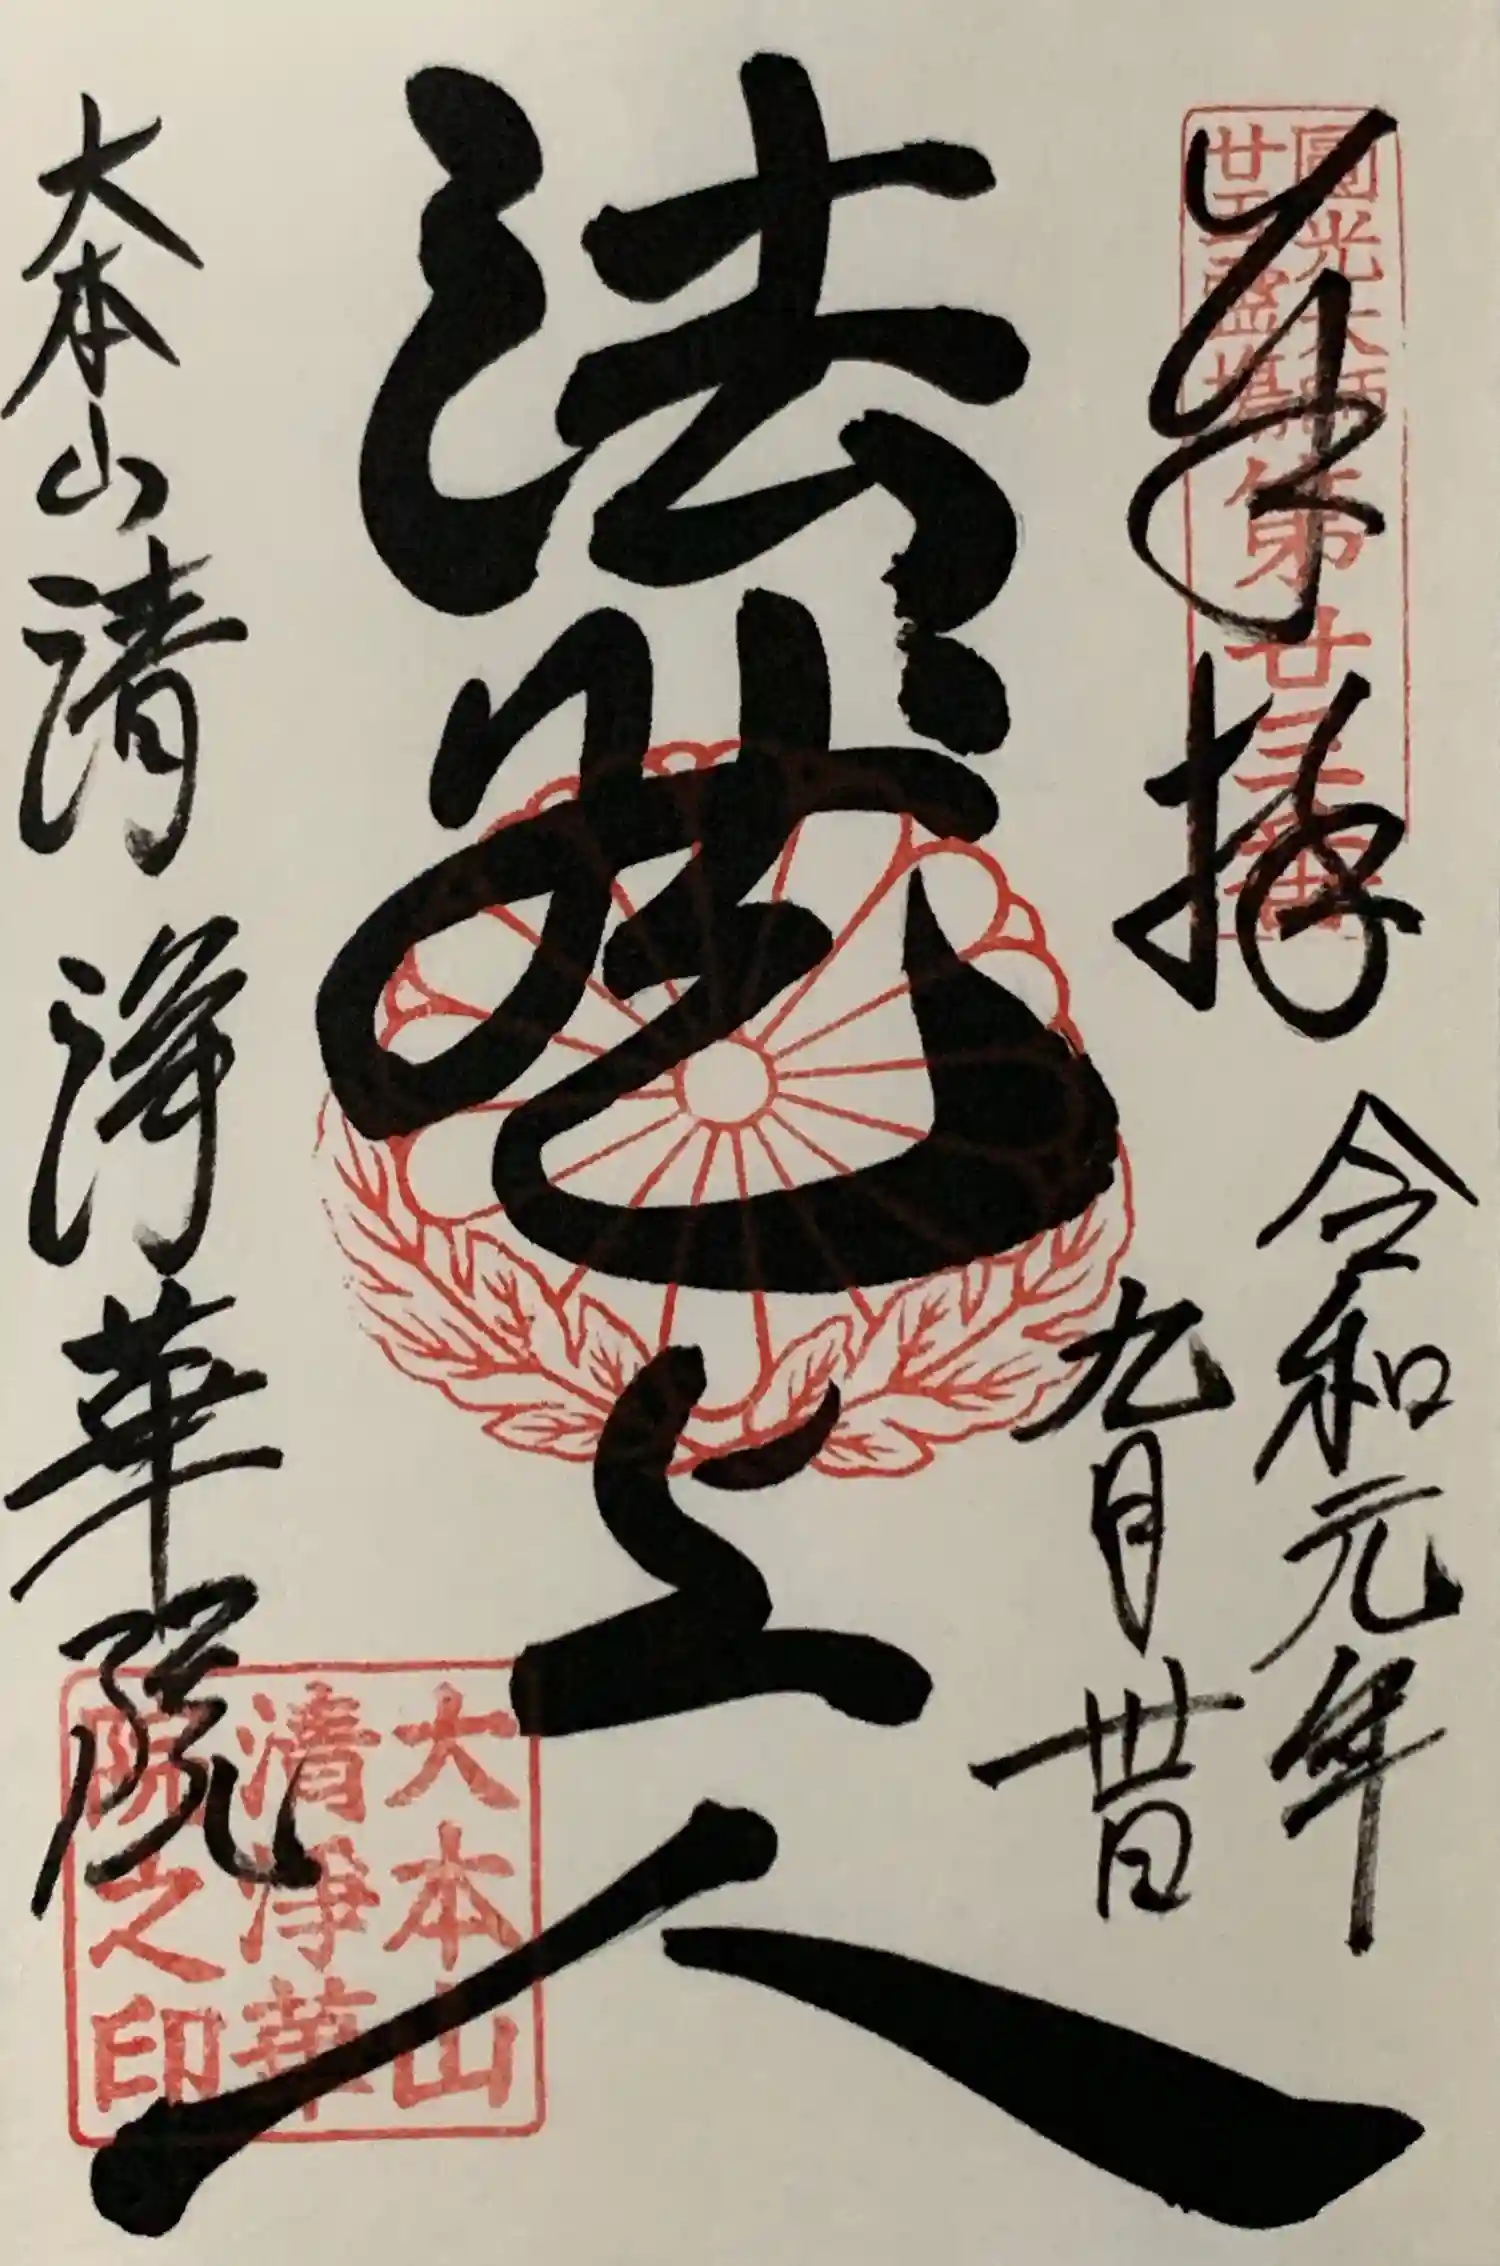 奉拝
圓光大師
廿五霊場
第廿三番
令和元年
九月卅日
法然上人
大本山清浄華院
大本山
清浄華
院之印